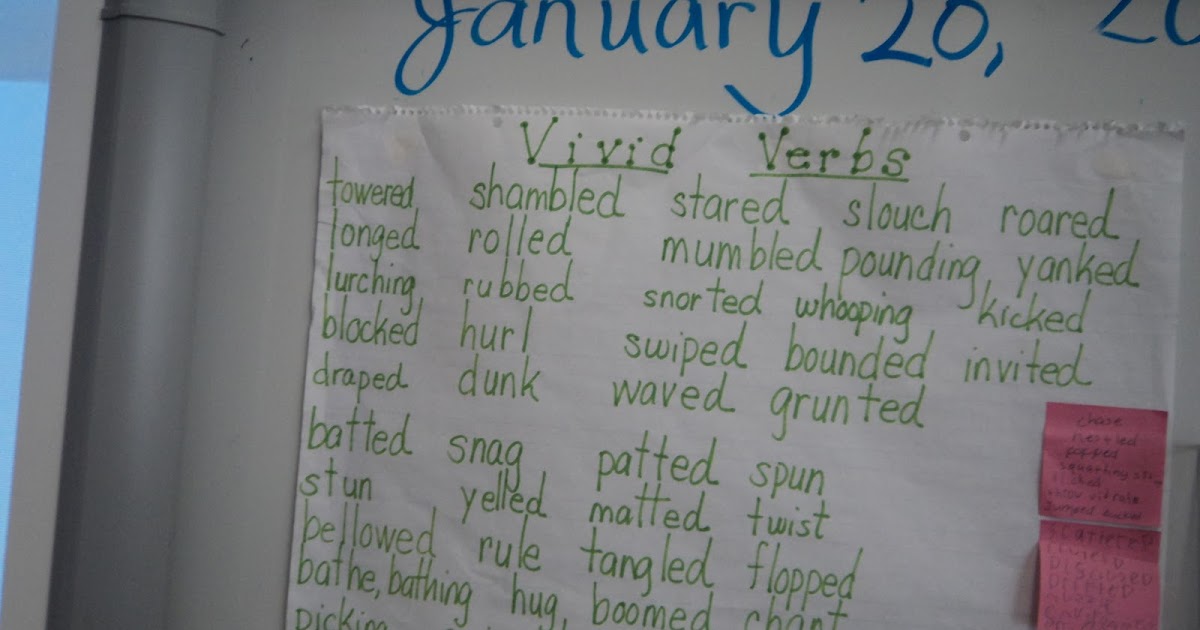 January 20,
Vivid Verbs
towered shambled stared slouch roared
longed rolled mumbled pounding yanked
lurching rubbed snorted whooping kicked
blocked hurl swiped bounded invited
draped dunk waved grunted
batted snag patted spun
stun yelled matted twist
bellowed rule tangled flopped
bathe, bathing hug boomed chant
picking
chase
nestled
popped